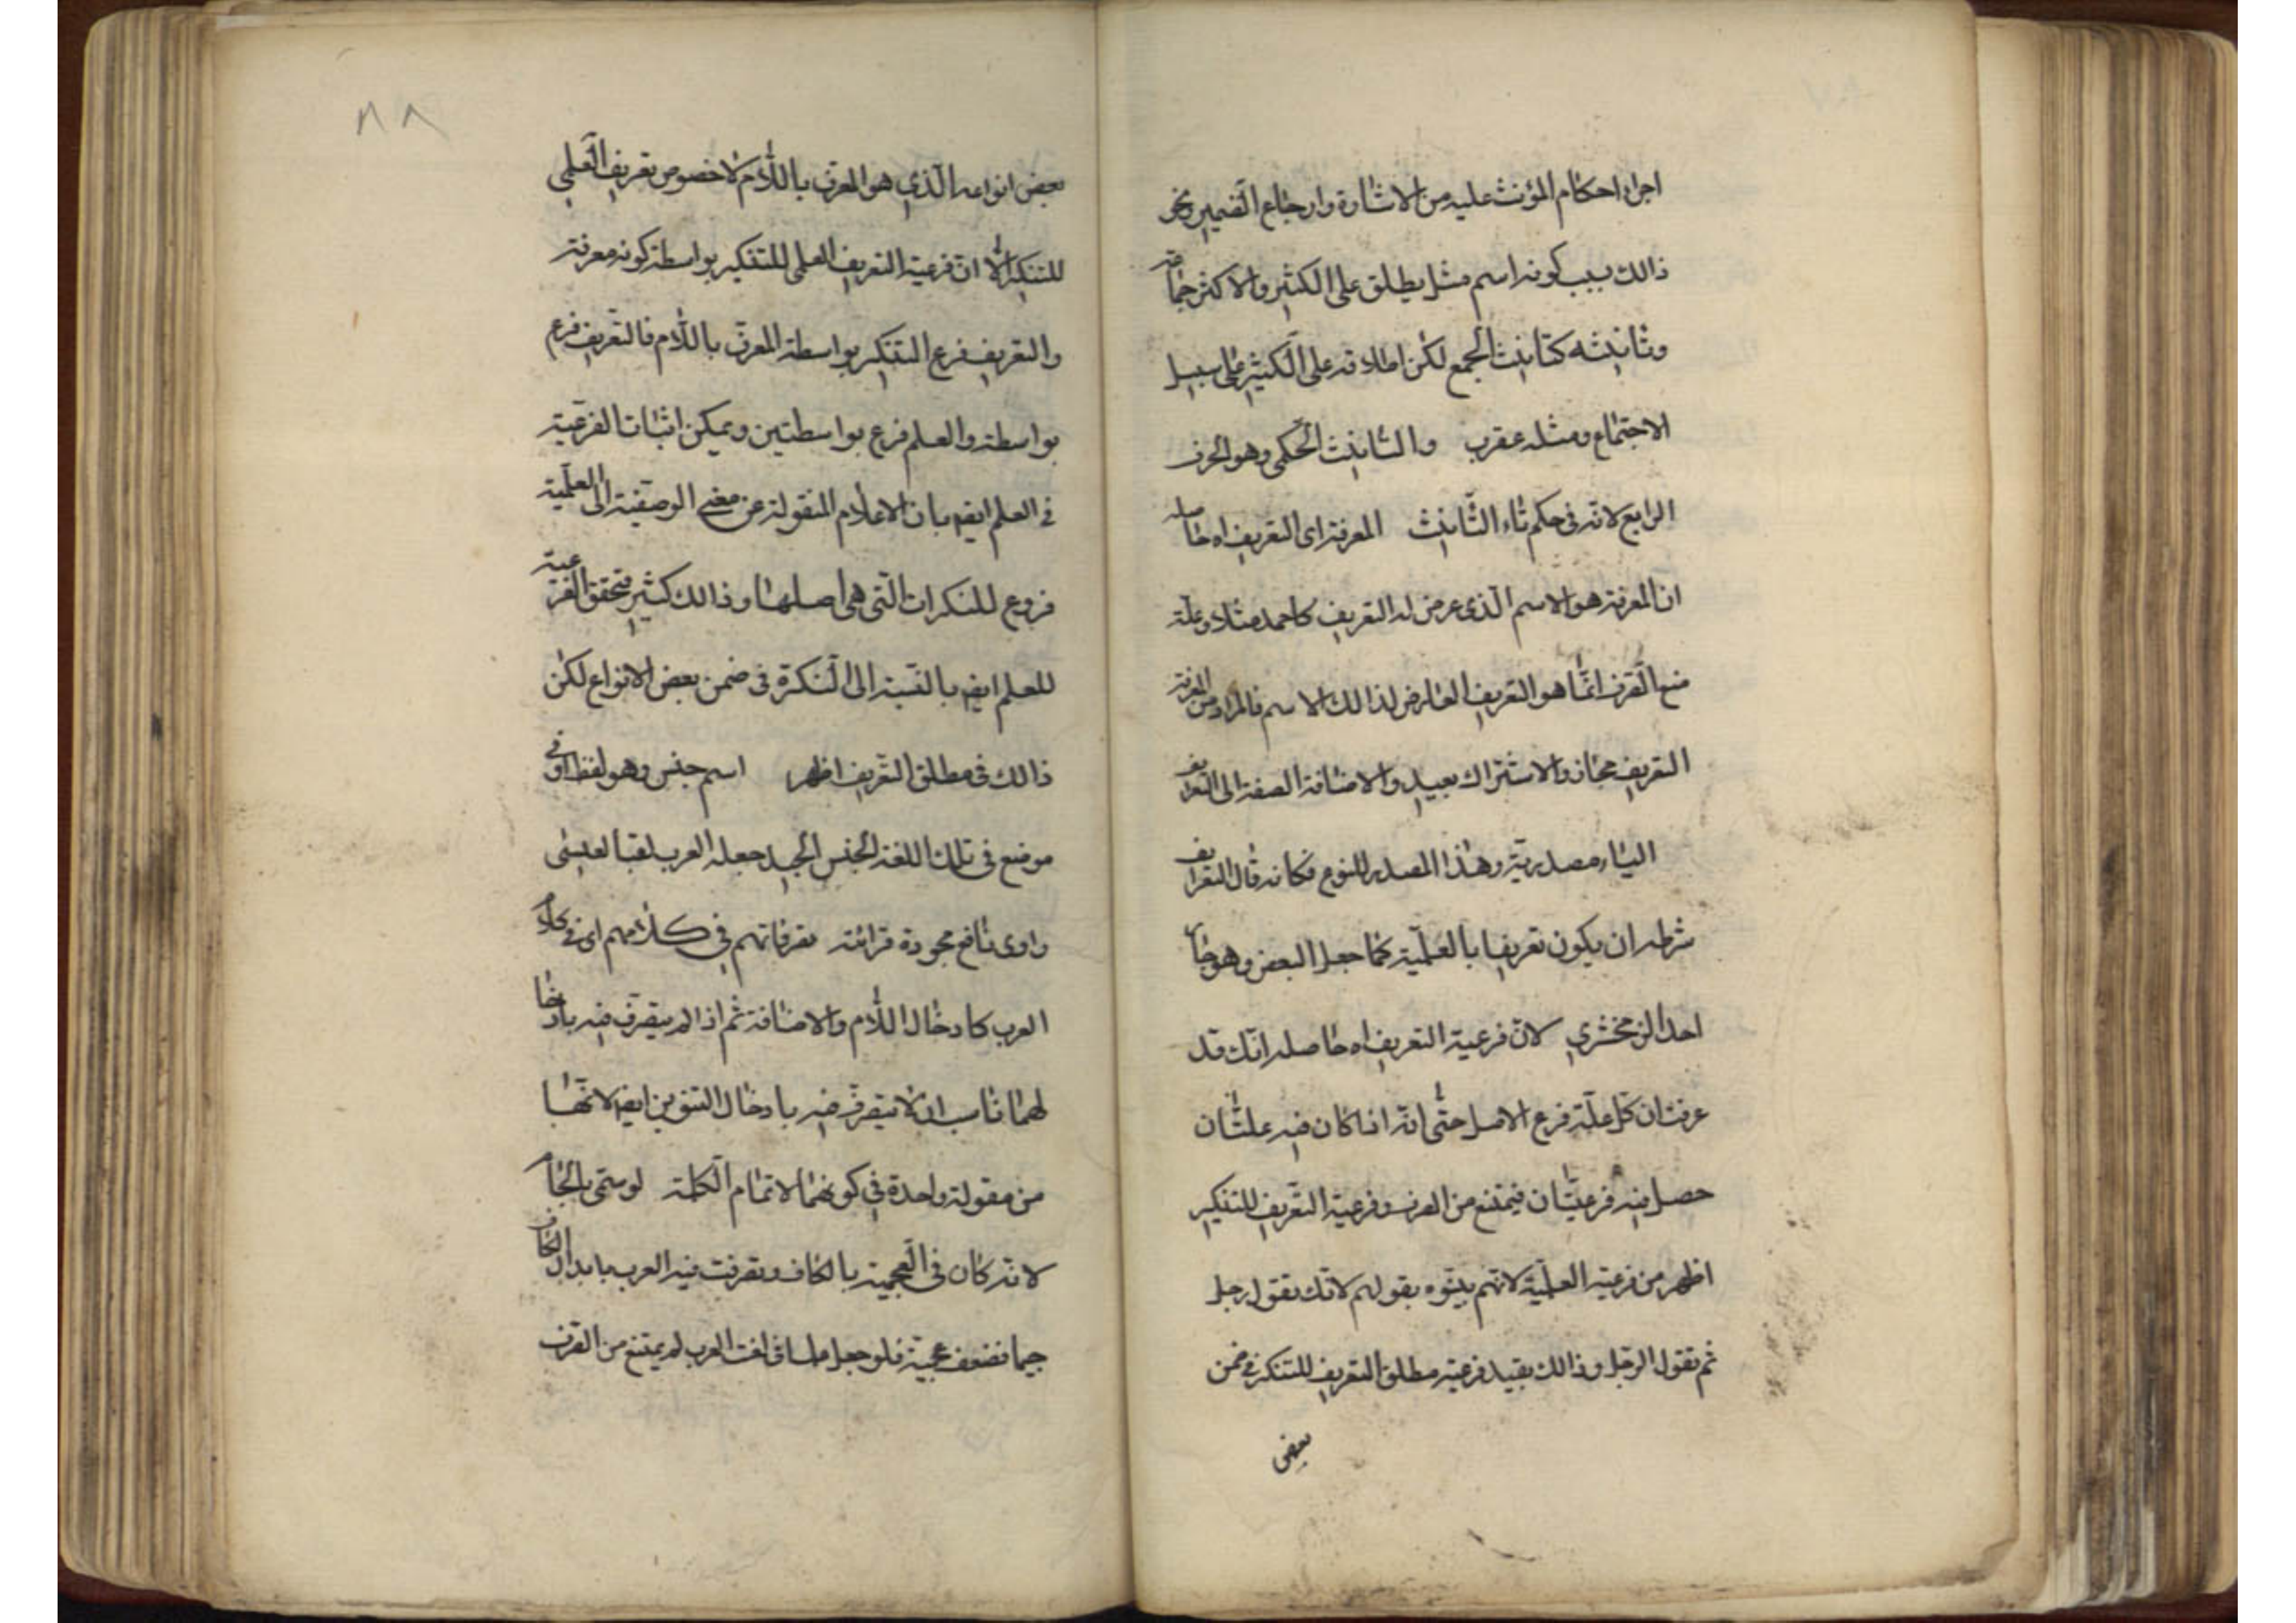 اجراء احكام المؤنث عليه من الاشارة وارجاع الضمير ونحو
ذالك بسبب كونه اسم مثل يطلق على الكثير والاكثر جماعة
وتانيثه كتانيث الجمع لكن اطلاقه على الكثير على سبيل
الاجتماع ومثله عقرب والتانيث الحكمى وهو الحرف
الرابع لانه فى حكم تاء التانيث المعرفة اى التعريف اه حاصله
ان المعرفة هو الاسم الذى عرض له التعريف كاحمد مثلا وعلة
منع الصرف انما هو التعريف العارض لذالك الاسم فالمراد من المعرفة
التعريف مجاز والاشتراك بعيد والاضافة الصفة الى التعريف
الياء مصدرية وهذا المصدر للنوع فكانه قال التعريف
شرطه ان يكون تعريفا بالعلمية كما جعل البعض وهو جار
احد الزمخشري لان فرعية التعريف اه حاصله انك قد
عرفت ان كل علة فرع الاصل حتى انه اذا كان فيه علتان
حصل فيه فرعيتان فيمتنع من الصرف وفرعية التعريف للتنكير
اظهر من فرعية العلمية لانهم بينوه بقولهم لانك تقول رجل
ثم تقول الرجل وذالك يفيد فرعية مطلق التعريف للتنكر فى ضمن
بعض
٨٨
بعض انواعه الذي هو المعرف باللام لا خصوص تعريف العلمي
للتنكير الا ان فرعية التعريف العلمى للتنكير بواسطة كونه معرفة
والتعريف فرع التنكير بواسطة المعرف باللام فالتعريف فرع
بواسطة والعلم فرع بواسطتين ويمكن اثبات الفرعية
فى العلم ايضا بان الاعلام المنقولة عن معنى الوصفية الى العلمية
فروع للنكرات التى هى اصلها وذالك كثير فتحقق الفرعية
للعلم ايضا بالنسبة الى النكرة فى ضمن بعض الانواع لكن
ذالك فى مطلق التعريف اظهر اسم جنس وهو لفظ اوفى
موضع فى تلك اللغة الجنس الجيد جعله العرب لقبا لعيسى
راوى نافع لجودة قرائته تصرفاتهم فى كلامهم اى فى كلام
العرب كادخال اللام والاضافة ثم اذا لم يتصرف فيه بادخا
لهما ناسب ان لا يتصرف فيه بادخال التنوين ايضا لانها
من مقولة واحدة فى كونهما لاتمام الكلمة لو سمى بالجام
لانه كان فى العجمية بالكاف وتصرفت فيه العرب بابدال الكاف
جيما فضعف عجميته فلو جعل علما فى لغة العرب لم يمتنع من الصرف